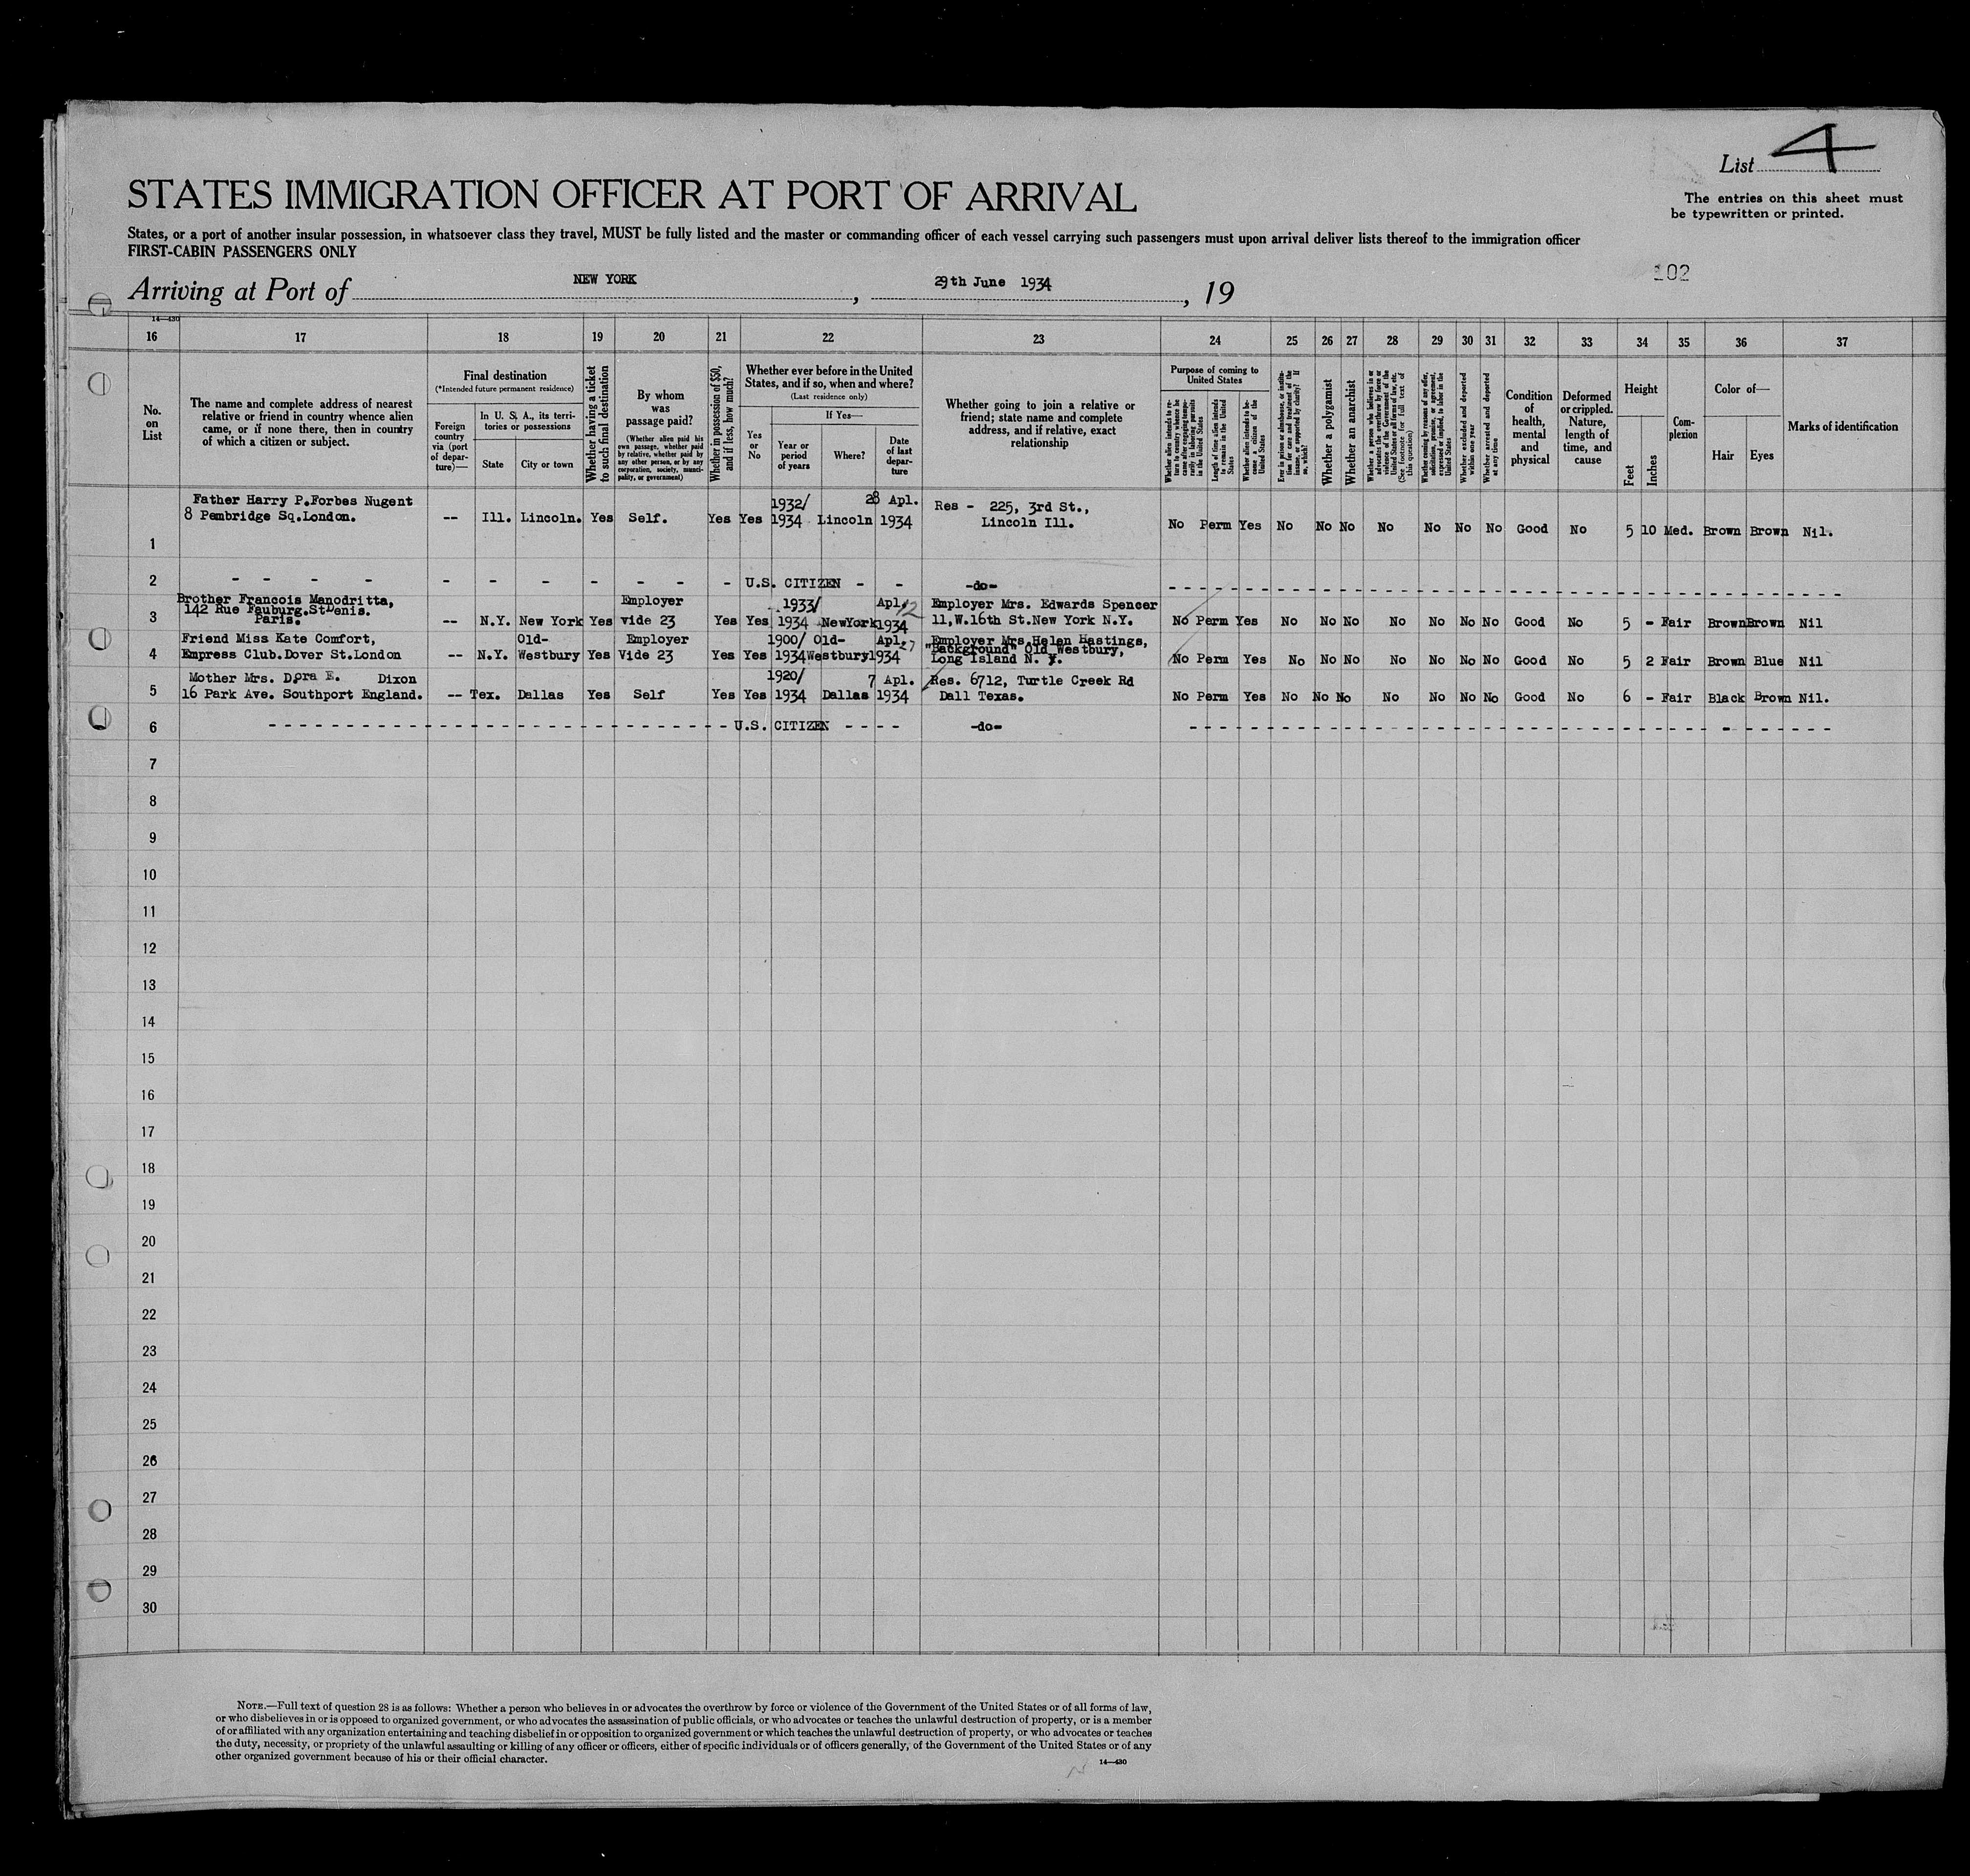 List 4
The entries on this sheet must
be typewritten or printed.
STATES IMMIGRATION OFFICER AT PORT OF ARRIVAL
States, or a port of another insular possession, in whatsoever class they travel, MUST be fully listed and the master or commanding officer of each vessel carrying such passengers must upon arrival deliver lists thereof to the immigration officer
FIRST-CABIN PASSENGERS ONLY
102
Arriving at Port of NEW YORK, 29th June 1934, 19
14—430
16 17 18 19 20 21 22 23 24 25 26 27 28 29 30 31 32 33 34 35 36 37
No. on List
The name and complete address of nearest relative or friend in country whence alien came, or if none there, then in country of which a citizen or subject.
Final destination
(*Intended future permanent residence)
Foreign country via (port of departure)—
In U. S. A., its territories or possessions
State
City or town
Whether having a ticket to such final destination
By whom was passage paid?
(Whether alien paid his own passage, whether paid by relative, whether paid by any other person, or by any corporation, society, municipality, or government)
Whether in possession of $50, and if less, how much?
Whether ever before in the United States, and if so, when and where?
(Last residence only)
Yes or No
If Yes—
Year or period of years
Where?
Date of last departure
Whether going to join a relative or friend; state name and complete address, and if relative, exact relationship
Purpose of coming to United States
Whether alien intends to return to country whence he came after engaging temporarily in laboring pursuits in the United States
Length of time alien intends to remain in the United States
Whether alien intends to become a citizen of the United States
Ever in prison or almshouse, or institution for care and treatment of the insane, or supported by charity? If so, which?
Whether a polygamist
Whether an anarchist
Whether a person who believes in or advocates the overthrow by force or violence of the Government of the United States or all forms of law, etc. (See footnote for full text of this question)
Whether coming by reasons of any offer, solicitation, promise, or agreement, expressed or implied, to labor in the United States
Whether excluded and deported within one year
Whether arrested and deported at any time
Condition of health, mental and physical
Deformed or crippled. Nature, length of time, and cause
Height
Feet
Inches
Complexion
Color of—
Hair
Eyes
Marks of identification
Father Harry P.Forbes Nugent 1932/ 28 Apl. Res - 225, 3rd St.,
8 Pembridge Sq.London. -- Ill. Lincoln. Yes Self. Yes Yes 1934 Lincoln 1934 Lincoln Ill. No Perm Yes No No No No No No No Good No 5 10 Med. Brown Brown Nil.
1
2 - - - - - - - - - - - U.S. CITIZEN - - -do- - - - -
Brother Francois Manodritta, Employer 1933/ Apl. 12 Employer Mrs. Edwards Spencer
3 142 Rue Fauburg.StDenis. -- N.Y. New York Yes vide 23 Yes Yes 1934 NewYork 1934 11,W.16th St.New York N.Y. No Perm Yes No No No No No No No Good No 5 - Fair Brown Brown Nil
Paris.
Friend Miss Kate Comfort, Old- Employer 1900/ Old- Apl. 27 Employer Mrs.Helen Hastings,
4 Empress Club.Dover St.London -- N.Y. Westbury Yes Vide 23 Yes Yes 1934 Westbury 1934 "Background" Old Westbury, No Perm Yes No No No No No No No Good No 5 2 Fair Brown Blue Nil
Long Island N. Y.
Mother Mrs. Dora E. Dixon 1920/ 7 Apl. Res. 6712, Turtle Creek Rd
5 16 Park Ave. Southport England. -- Tex. Dallas Yes Self Yes Yes 1934 Dallas 1934 Dall Texas. No Perm Yes No No No No No No No Good No 6 - Fair Black Brown Nil.
6 - - - - - - U.S. CITIZEN - - - - -do- - - - -
7
8
9
10
11
12
13
14
15
16
17
18
19
20
21
22
23
24
25
26
27
28
29
30
NOTE.—Full text of question 28 is as follows: Whether a person who believes in or advocates the overthrow by force or violence of the Government of the United States or of all forms of law,
or who disbelieves in or is opposed to organized government, or who advocates the assassination of public officials, or who advocates or teaches the unlawful destruction of property, or is a member
of or affiliated with any organization entertaining and teaching disbelief in or opposition to organized government or which teaches the unlawful destruction of property, or who advocates or teaches
the duty, necessity, or propriety of the unlawful assaulting or killing of any officer or officers, either of specific individuals or of officers generally, of the Government of the United States or of any
other organized government because of his or their official character.
14—430